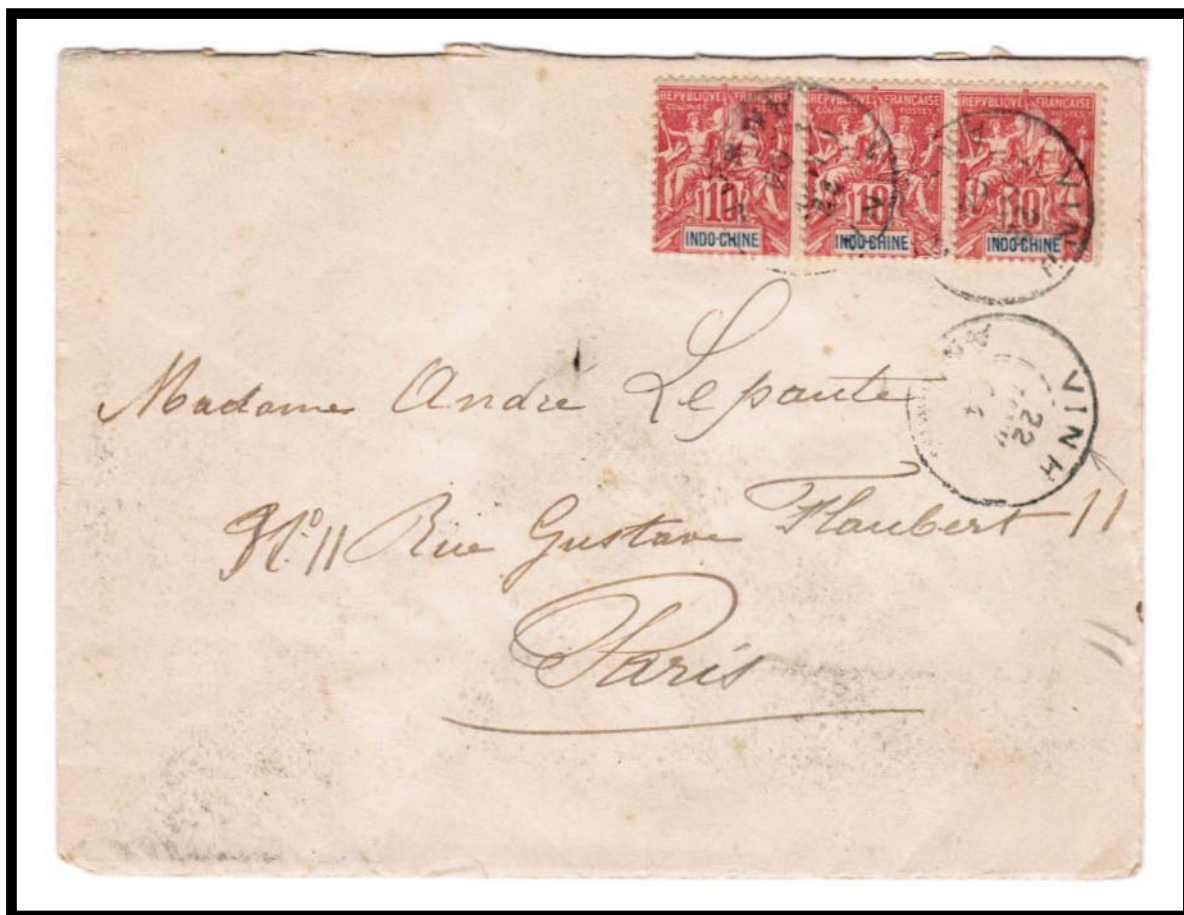 REPVBLIQVE FRANÇAISE
COLONIES POSTES
10
INDO-CHINE
REPVBLIQVE FRANÇAISE
COLONIES POSTES
10
INDO-CHINE
REPVBLIQVE FRANÇAISE
10
INDO-CHINE
VINH
VINH
22
Madame André Lepaute
N° 11 Rue Gustave Flaubert 11
Paris